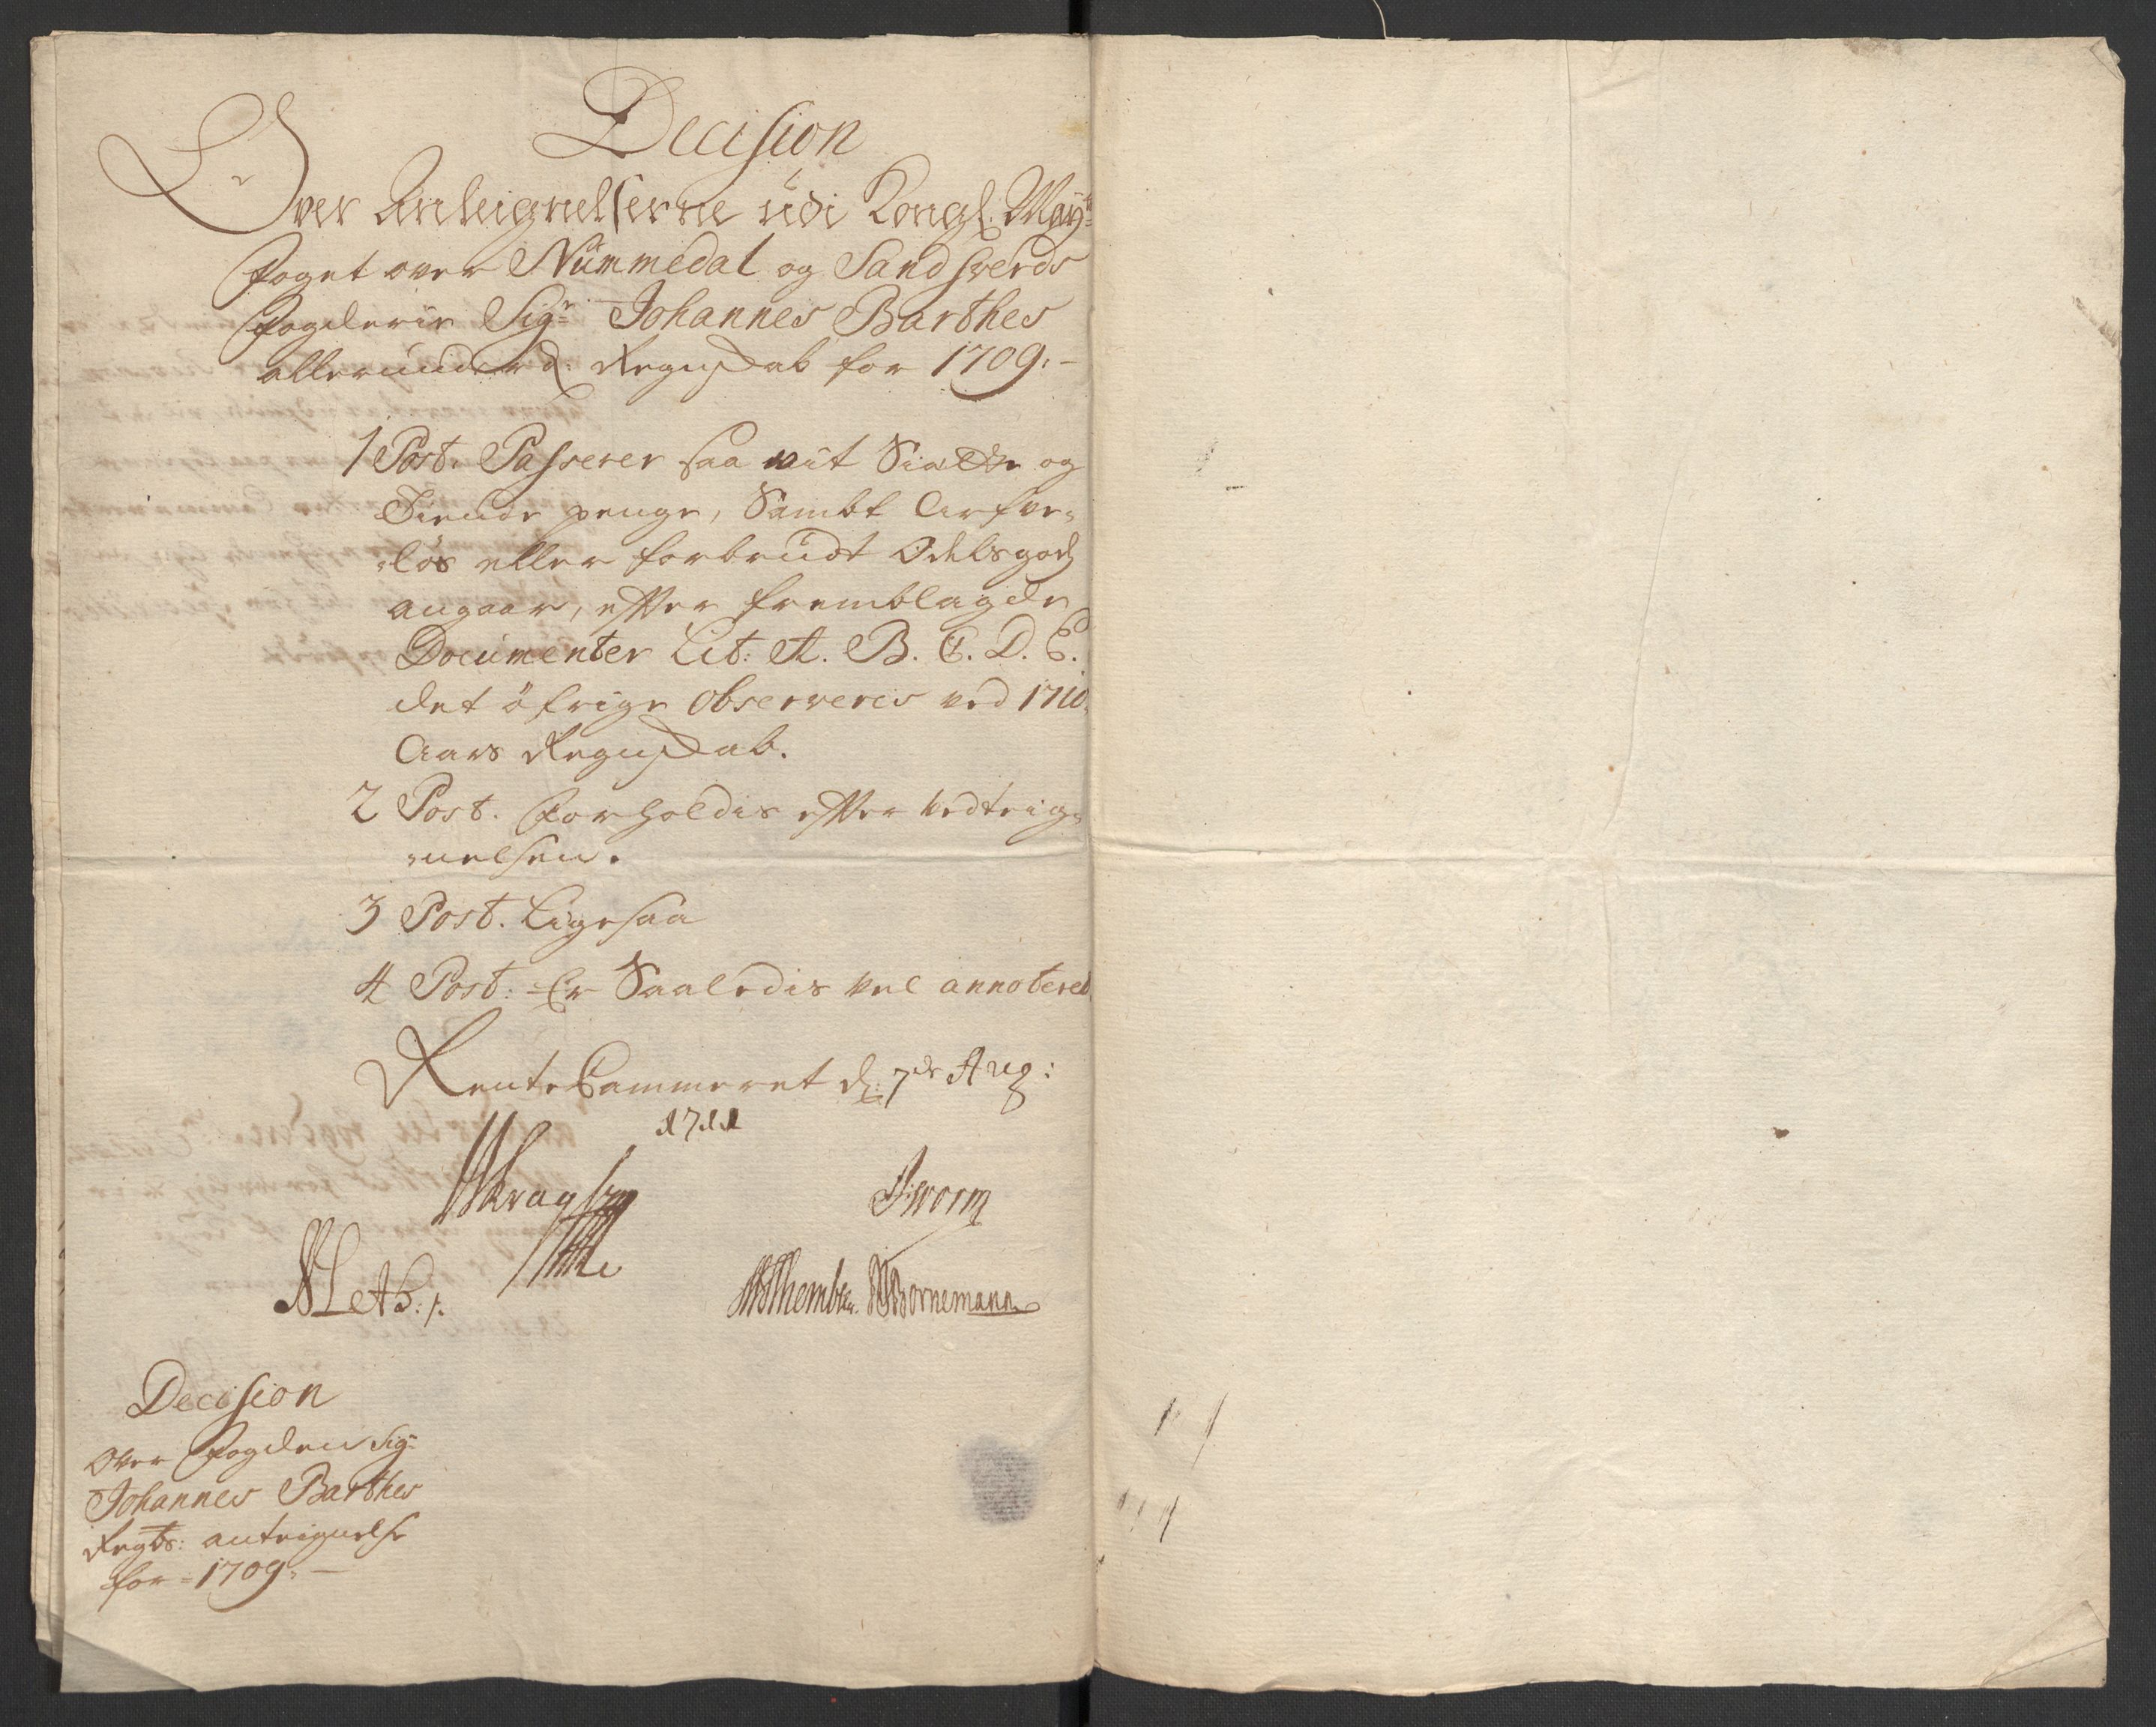 Decision
Over Anteignelserne udi Kongl. May:ts
Foget over Nummedal og Sandsverds
Fogderie Sigr Johannes Barthes
allerunderd: Regnskab for 1709.
1 Post. Passerer saa vit Siætte og
Tiende penge, Sambt Arfve-
løs eller forbrudt Odelsgods
angaar, efter fremblagde
Documenter Lit: A. B. C. D. E.
det øfrige observeres ved 1710.
Aars Regnskab.
2 Post. Forholdis efter Vedteig-
nelsen.
3 Post. Ligesaa
4 Post: Er Saaledis vel annoteret
Rente Cammeret d: 7de Aug:
1711
Worm
Bornemann
Decision
Over Fogden Sigr
Johannes Barthes
Regsk: anteignelse
for 1709.